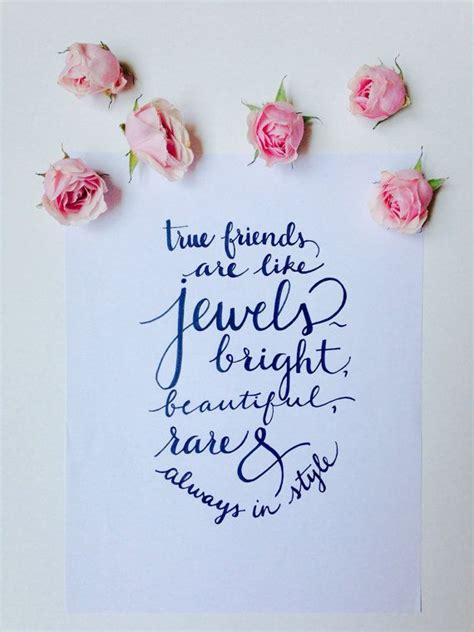 true friends
are like
jewels~
bright,
beautiful,
rare &
always in style